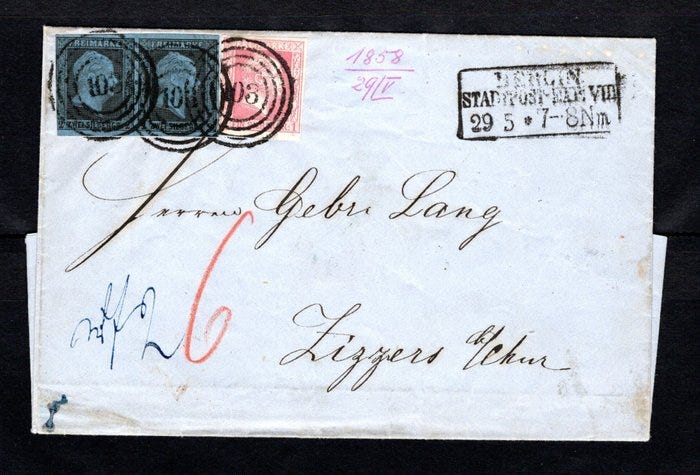 FREIMARKE FREIMARKE
103 103 103
1858
29/V
BERLIN
STADTPOST-EXP. VIII
29 5 * 7-8 Nm
Herren Gebr. Lang
6
Zizzers b/Chur